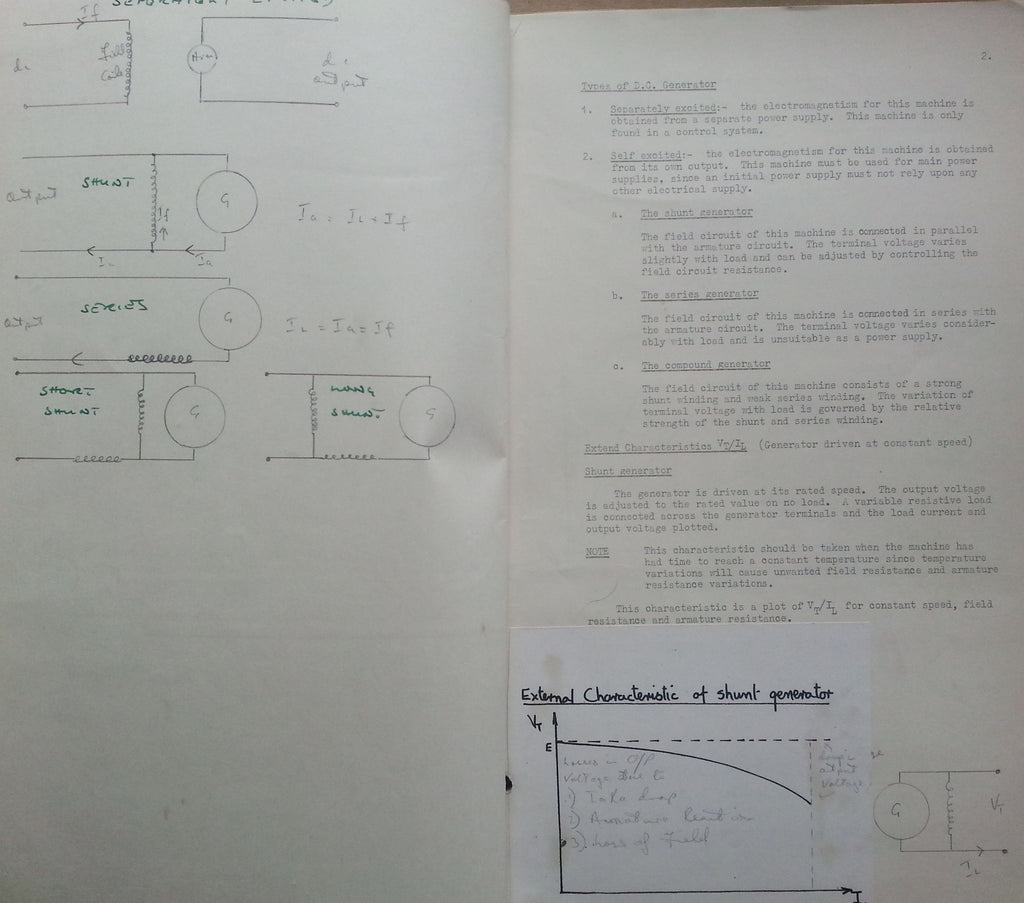 SEPARATELY EXCITED
If
dc
Field
Coils
Arm
d c
output
SHUNT
output
G
If
Ia = IL + If
IL
Ia
SERIES
output
G
IL = Ia = If
SHORT
SHUNT
G
LONG
SHUNT
G
2.
Types of D.C. Generator
1. Separately excited:- the electromagnetism for this machine is
obtained from a separate power supply. This machine is only
found in a control system.
2. Self excited:- the electromagnetism for this machine is obtained
from its own output. This machine must be used for main power
supplies, since an initial power supply must not rely upon any
other electrical supply.
a. The shunt generator
The field circuit of this machine is connected in parallel
with the armature circuit. The terminal voltage varies
slightly with load and can be adjusted by controlling the
field circuit resistance.
b. The series generator
The field circuit of this machine is connected in series with
the armature circuit. The terminal voltage varies consider-
ably with load and is unsuitable as a power supply.
c. The compound generator
The field circuit of this machine consists of a strong
shunt winding and weak series winding. The variation of
terminal voltage with load is governed by the relative
strength of the shunt and series winding.
Extend Characteristics VT/IL (Generator driven at constant speed)
Shunt generator
The generator is driven at its rated speed. The output voltage
is adjusted to the rated value on no load. A variable resistive load
is connected across the generator terminals and the load current and
output voltage plotted.
NOTE This characteristic should be taken when the machine has
had time to reach a constant temperature since temperature
variations will cause unwanted field resistance and armature
resistance variations.
This characteristic is a plot of VT/IL for constant speed, field
resistance and armature resistance.
External Characteristic of shunt generator
VT
E
Losses in O/P
Voltage due to
1) IaRa drop
2) Armature Reaction
3) Loss of Field
drop in
output
voltage
I
G
VT
IL